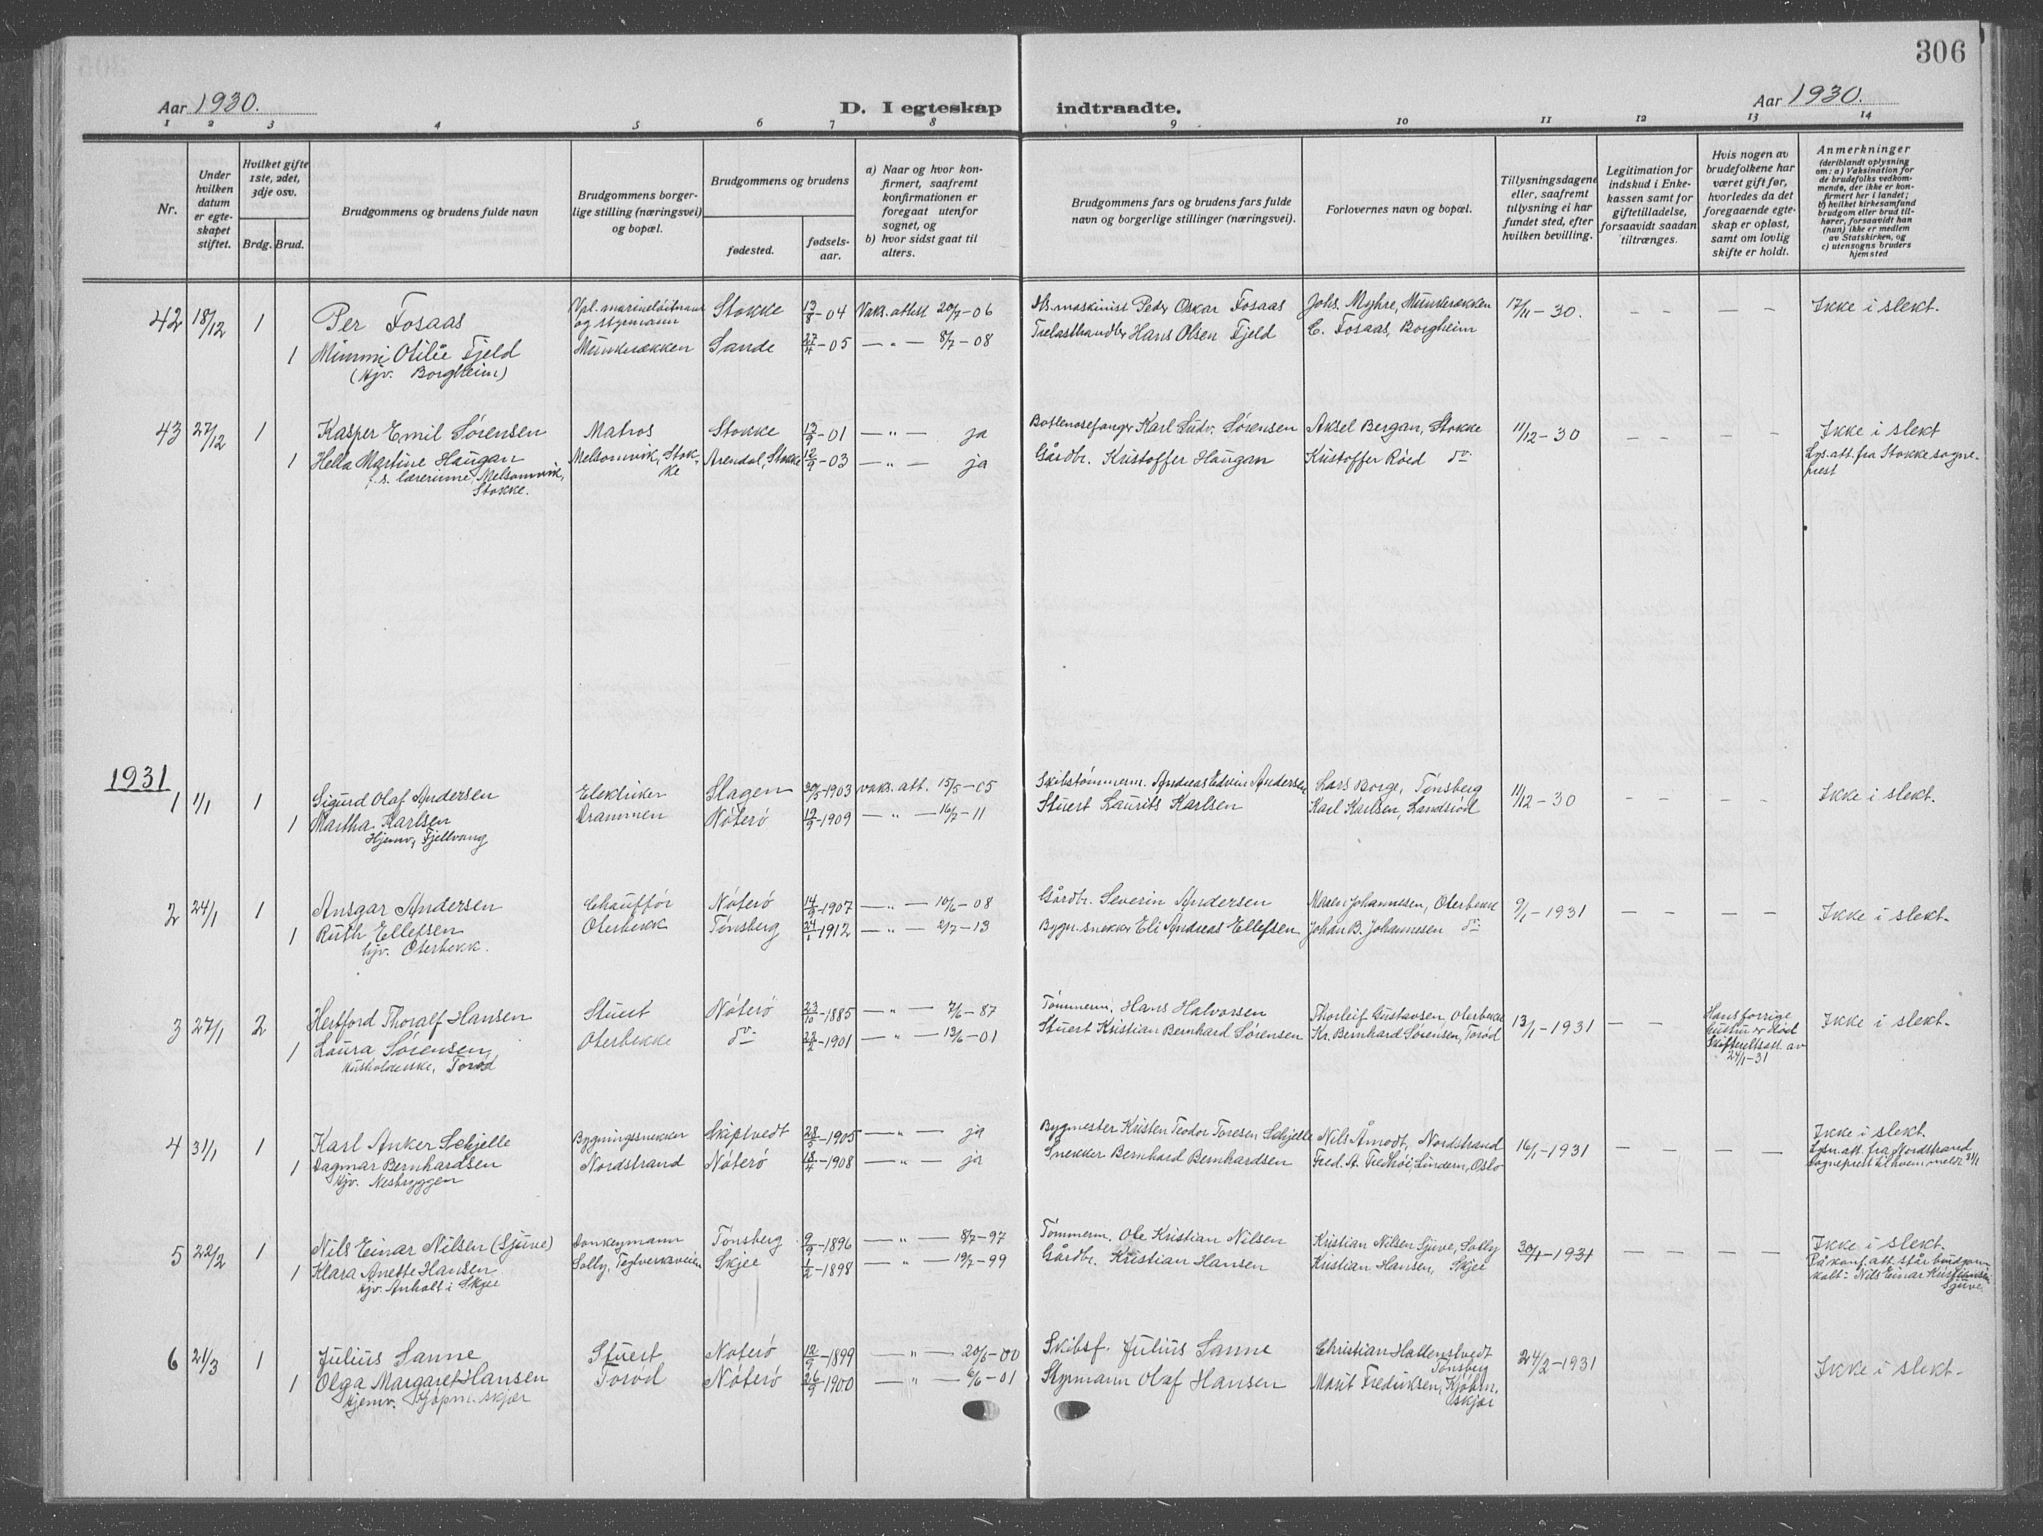 306
Aar 1930.
D. I egteskap indtraadte.
Aar 1930.
1 2 3 4 5 6 7 8 9 10 11 12 13 14
Nr.
Under hvilken datum er egteskapet stiftet.
Hvilket gifte 1ste, 2det, 3dje osv.
Brdg. Brud.
Brudgommens og brudens fulde navn
Brudgommens borgerlige stilling (næringsvei) og bopæl.
Brudgommens og brudens
fødested.
fødselsaar.
a) Naar og hvor konfirmert, saafremt konfirmationen er foregaat utenfor sognet, og
b) hvor sidst gaat til alters.
Brudgommens fars og brudens fars fulde navn og borgerlige stillinger (næringsvei).
Forlovernes navn og bopæl.
Tillysningsdagene eller, saafremt tillysning ei har fundet sted, efter hvilken bevilling.
Legitimation for indskud i Enkekassen samt for giftetilladelse, forsaavidt saadan tiltrænges.
Hvis nogen av brudefolkene har været gift før, hvorledes da det foregaaende egteskap er opløst, samt om lovlig skifte er holdt.
Anmerkninger
(deriblandt oplysning om: a) Vaksination for de brudefolks vedkommende, der ikke er konfirmert her i landet; b) hvilket kirkesamfund brudgom eller brud tilhører, forsaavidt han (hun) ikke er medlem av Statskirken, og c) utensogns bruders hjemsted
42 18/12 1 Per Fosaas Vpl. marineløitnant og styrmann Stokke 13/8-04 Vaks. attest 20/7-06 Peder Oskar Fosaas Johs. Myhre, Munkerekken 17/11-30. – – – – Ikke i slekt.
1 Mimmi Otilie Fjeld Munkerekken Sande 27/4-05 —"— 8/7-08 Trelasthandler Hans Olsen Fjeld C. Fosaas, Borgheim
(Hjv. Borgheim)
43 27/12 1 Kasper Emil Sørensen Matros Stokke 13/9-01 —"— ja Botlenosefanger Karl Ludv. Sørensen Aksel Bergan, Stokke 11/12-30 – – – – Ikke i slekt
1 Helia Martine Haugan Melsomvik, Stokke Arendal, Stokke 12/9-03 —"— ja Gårdbr. Kristoffer Haugan Kristoffer Røed do Lys. att. fra Stokke sogneprest
f.s. lærerinne, Melsomvik,
Stokke.
1931
1 1/1 1 Sigurd Olaf Andersen Elektriker Slagen 30/5-1903 vaks. att. 15/5-05 Skibstømmerm. Andreas Edvin Andersen Lars Borge, Tønsberg 11/12-30 – – – – Ikke i slekt.
1 Martha Karlsen Drammen Nøterø 12/9-1909 —"— 16/7-11 Stuert Laurits Karlsen Karl Karlsen, Sandsrød
Hjemv, Fjellvang
2 24/1 1 Ansgar Andersen Chauffør Nøterø 14/9-1907 —"— 10/6-08 Gårdbr. Severin Andersen Johannesen, Oterbekk 9/1-1931 – – – – Ikke i slekt.
1 Ruth Ellefsen Oterbekk Tønsberg 24/1-1912 —"— 2/7-13 Bygn. snekker Eli Andreas Ellefsen Johan B. Johannesen do
Hjv. Oterbekk.
3 27/1 2 Hertford Thoralf Hansen Stuert Nøterø 23/10-1885 —"— 7/6-87 Tømmerm. Hans Halvorsen Thorleif Gustavsen, Oterbekke 13/1-1931 – – Hans forrige hustru er død Skifterettsatt. av 24/1-31 Ikke i slekt.
1 Laura Sørensen Oterbekke do 22/2-1901 —"— 13/6-01 Stuert Kristian Bernhard Sørensen Kr. Bernhard Sørensen, Torød
husholderske, Torød
4 31/1 1 Karl Anker Schjelle Bygningssnekker Skiptvedt 28/5-1905 —"— ja Bygmester Kristen Teodor Toresen Schjelle Nils Åmodt, Nordstrand 16/1-1931 – – – – Ikke i slekt.
1 Dagmar Bernhardsen Nordstrand Nøterø 18/4-1908 —"— ja Snekker Bernhard Bernhardsen Fred. A. Fredhöi, Lindern, Oslo Lysn. att. fra Nordstrand Sogneprest til hvem meldt 31/1
Hjv. Nesbryggen
5 22/2 1 Nils Einar Nilsen (Sjuve) Donkeymann Tønsberg 9/9-1896 —"— 8/7-97 Tømmerm. Ole Kristian Nilsen Kristian Nilsen Sjuve, Solby 30/1-1931 – – – – Ikke i slekt.
1 Klara Anette Hansen Solby, Teglverksveien Skjee 1/2-1898 —"— 19/7-99 Gårdbr. Kristian Hansen Kristian Hansen, Skjee På konf. att. står brudgom kalt: Nils Einar Kristiansen Sjuve.
Hjv. Anholt i Skjee
6 21/3 1 Julius Sanne Stuert Nøterø 12/9-1899 —"— 20/6-00 Skibsf. Julius Sanne Christian Hallenstvedt Tønsberg 24/2-1931 Ikke i slekt.
1 Olga Margaret Hansen Torød Nøterø 26/9-1900 —"— 6/6-01 Styrmann Olaf Hansen Marit Fredriksen, Kjøbm.skjær
Hjemv. Kjøpm.skjær